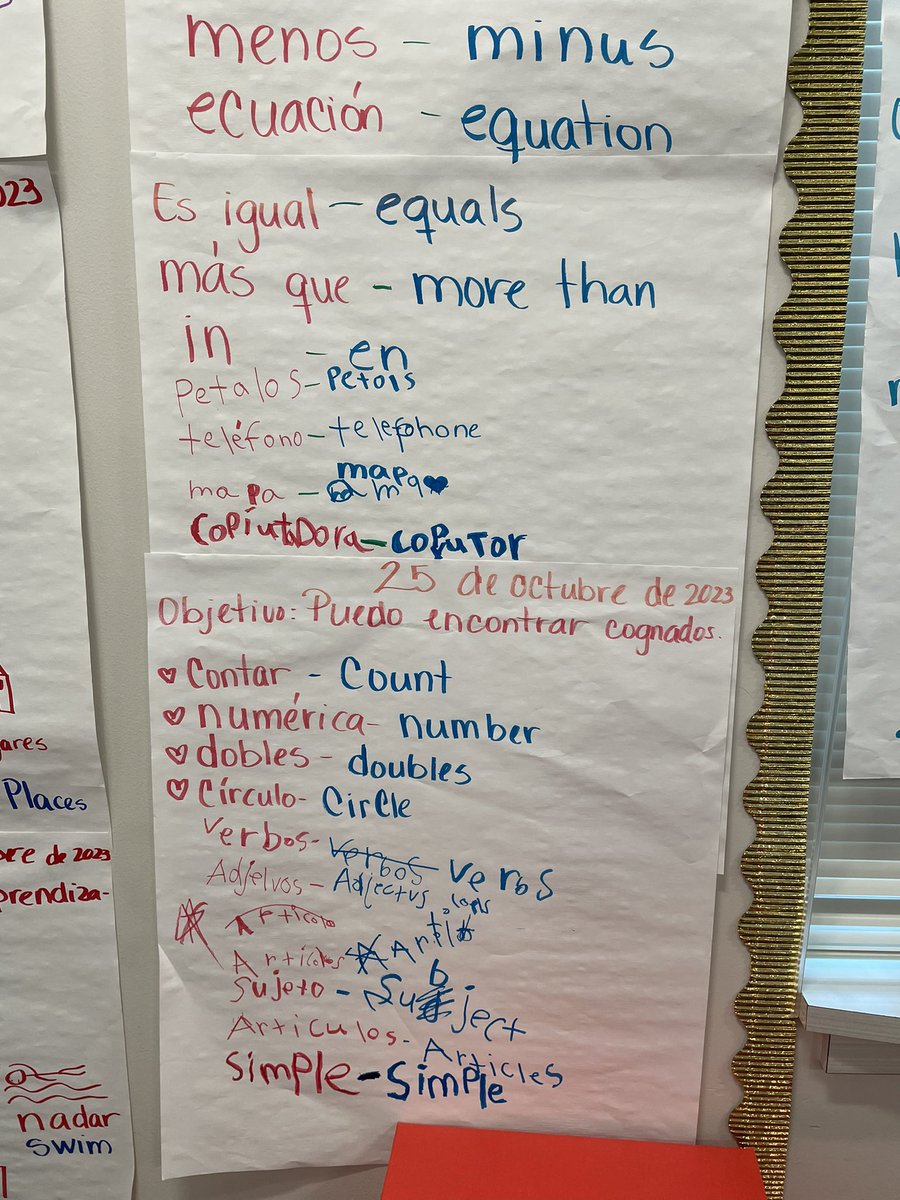 menos - minus
ecuación - equation
Es igual - equals
más que - more than
in - en
Petalos - Petols
teléfono - telephone
mapa
mapa -
COPiutaDora - COPuTOr
25 de octubre de 2023
Objetivo: Puedo encontrar cognados.
Contar - Count
numérica - number
dobles - doubles
Círculo - CirCle
Verbos - Verbos verbs
Adjetvos - Adjectvs
Articolo
Articolos
Sujeto - Subject
Articulos - Articles
Simple - Simple
023
ares
Places
bre de 2023
prendiza-
nadar
swim